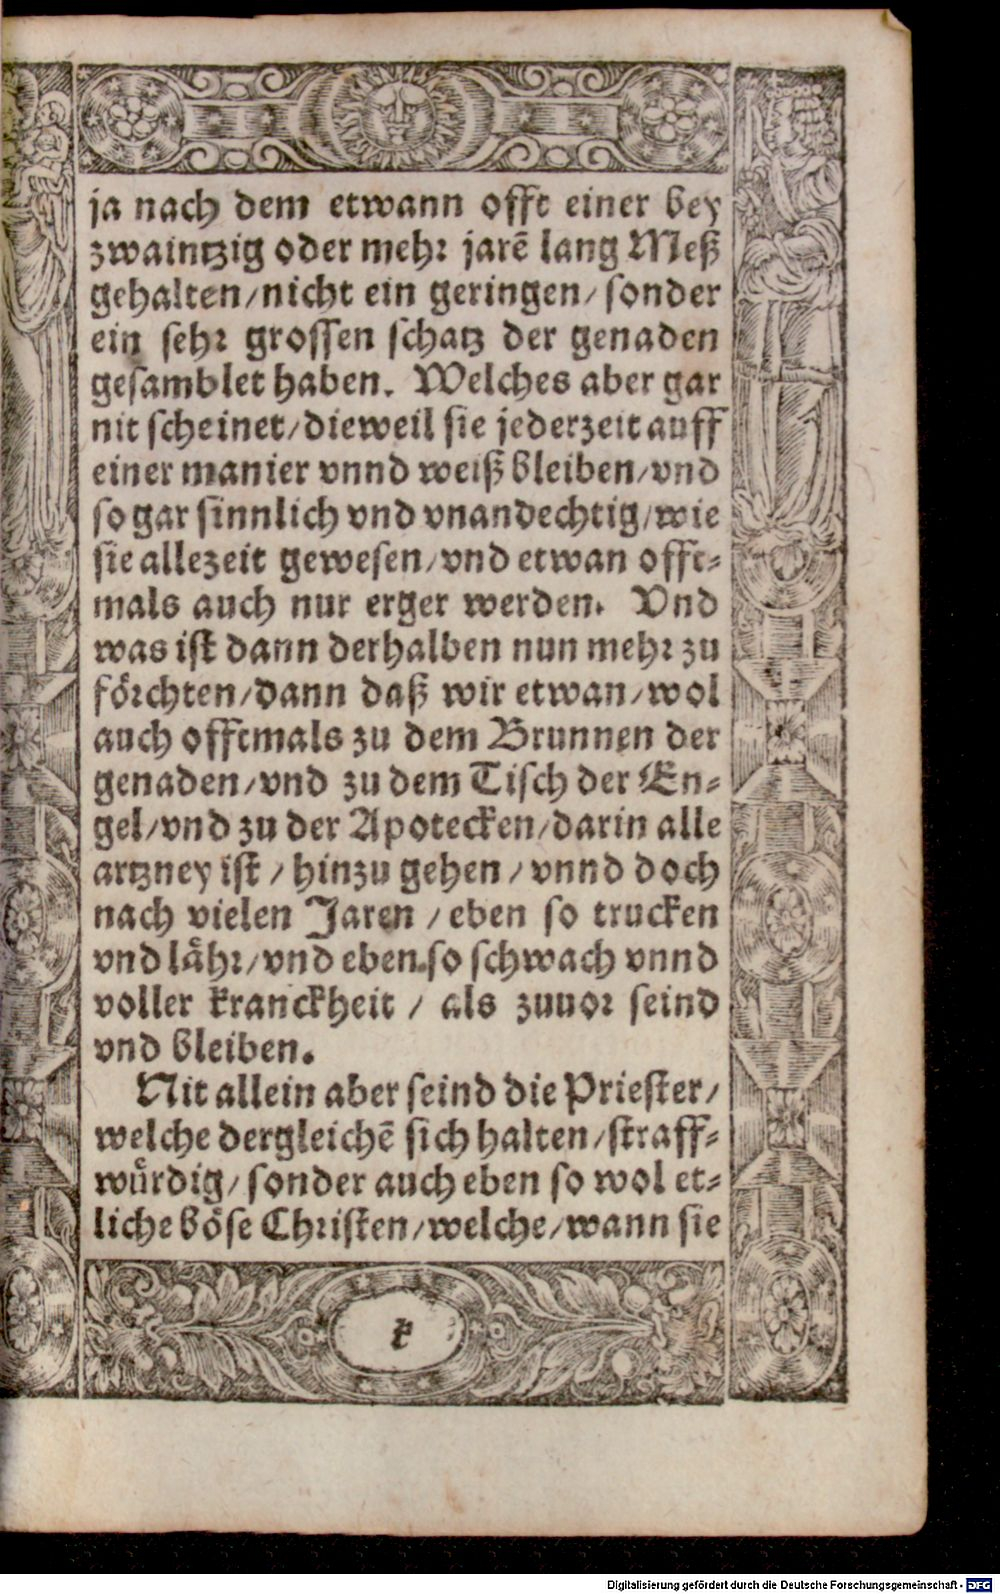 ja nach dem etwann offt einer bey
zwaintzig oder mehr jarẽ lang Meß
gehalten/nicht ein geringen/sonder
ein sehr grossen schatz der genaden
gesamblet haben. Welches aber gar
nit scheinet/dieweil sie jederzeit auff
einer manier vnnd weiß bleiben/vnd
so gar sinnlich vnd vnandechtig/wie
sie allezeit gewesen/vnd etwan offt-
mals auch nur erger werden. Vnd
was ist dann derhalben nun mehr zu
förchten/dann daß wir etwan/wol
auch offtmals zu dem Brunnen der
genaden/vnd zu dem Tisch der En-
gel/vnd zu der Apotecken/darin alle
artzney ist / hinzu gehen / vnnd doch
nach vielen Jaren / eben so trucken
vnd lähr/vnd eben so schwach vnnd
voller kranckheit / als zuuor seind
vnd bleiben.
Nit allein aber seind die Priester/
welche dergleichẽ sich halten/straff-
würdig/sonder auch eben so wol et-
liche böse Christen/welche/wann sie
k
Digitalisierung gefördert durch die Deutsche Forschungsgemeinschaft - DFG